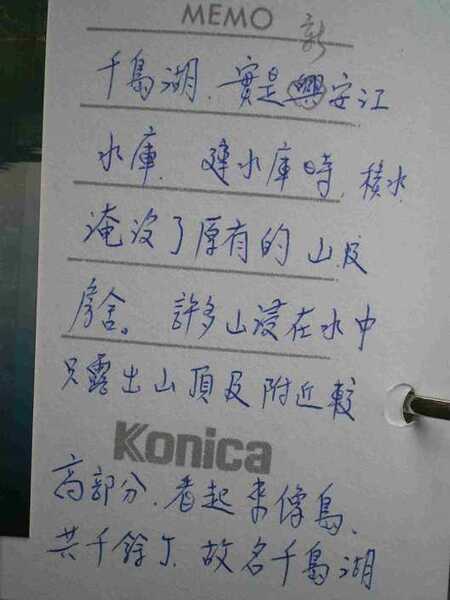 MEMO
新
千島湖. 實是興安江
水庫. 建水庫時, 積水
淹沒了原有的山及
房舍。許多山浸在水中
只露出山頂及附近較
Konica
高部分, 看起來像島,
共千餘个, 故名千島湖